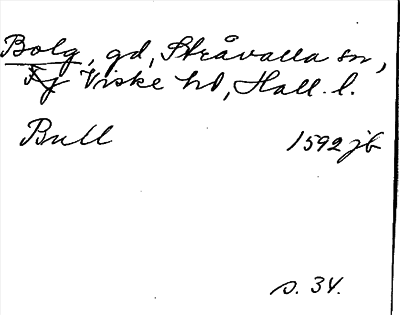 Bolg, gd, Stråvalla sn,
Viske hd, Hall. l.
Bull 1592 jb
s. 34.